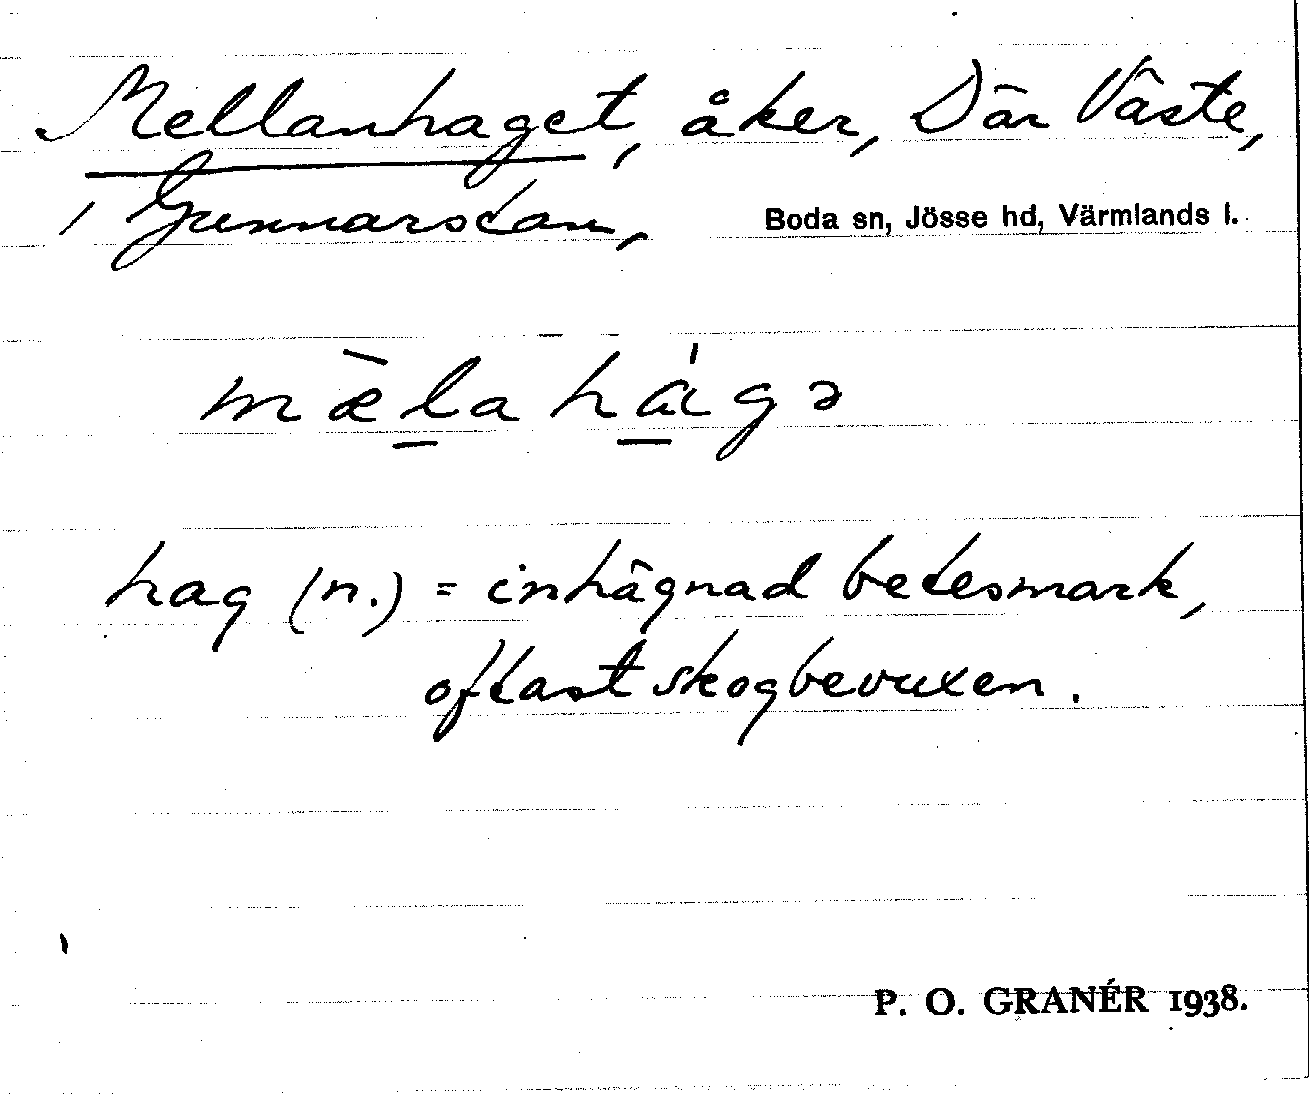 Mellanhaget, åker, Där Väste,
i Gunnarstan, Boda sn, Jösse hd, Värmlands l.
mæ̀l̲a há̲gə
hag (n.) = inhägnad betesmark,
oftast skogbevuxen.
P. O. GRANÉR 1938.